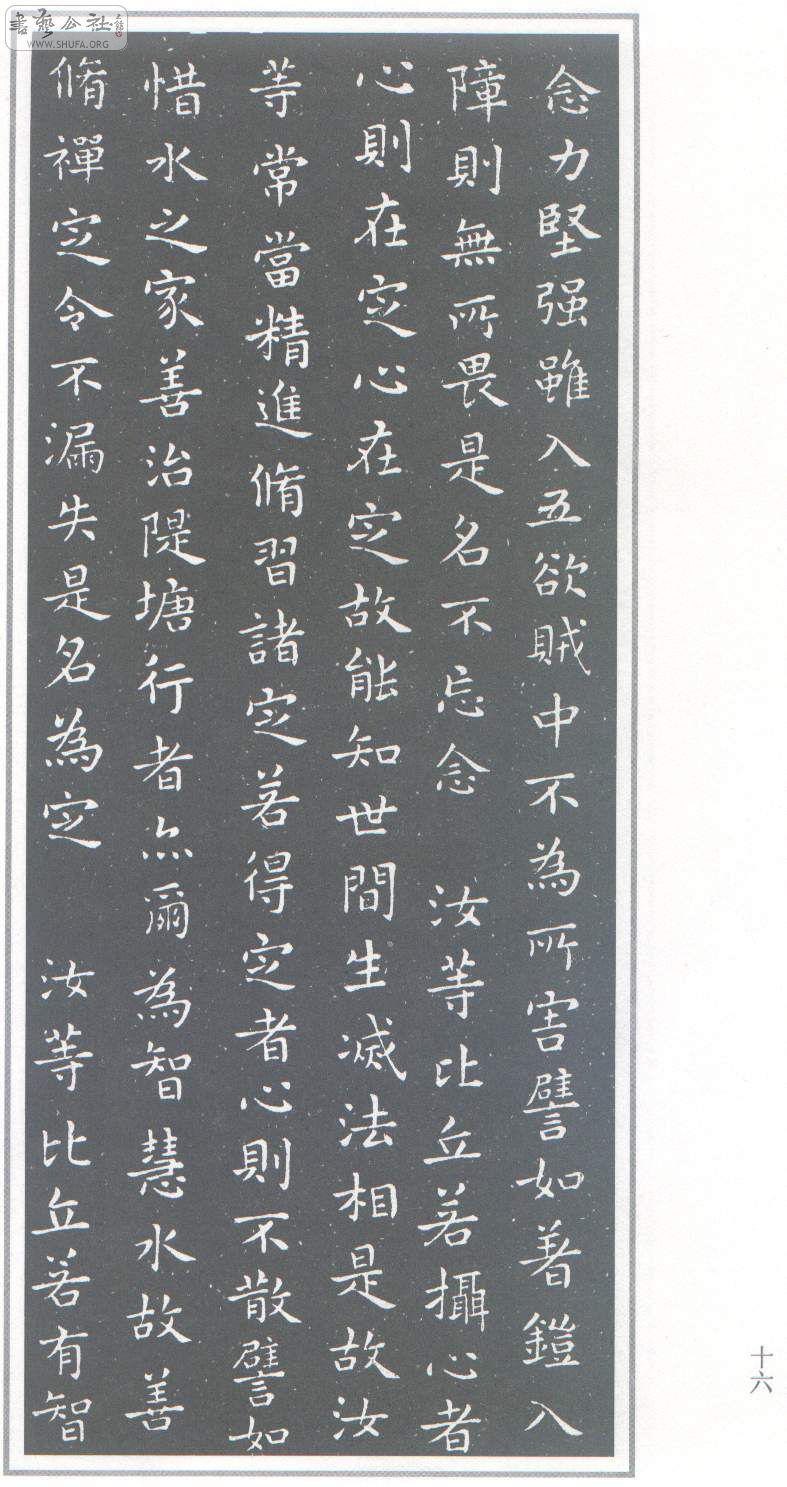 念力堅强雖入五欲賊中不為所害譬如著鎧入
障則無所畏是名不忘念 汝等比丘若攝心者
心則在定心在定故能知世間生滅法相是故汝
等常當精進脩習諸定若得定者心則不散譬如
惜水之家善治隄塘行者亦爾為智慧水故善
脩禪定令不漏失是名為定 汝等比丘若有智
十六
書藝公社
WWW.SHUFA.ORG